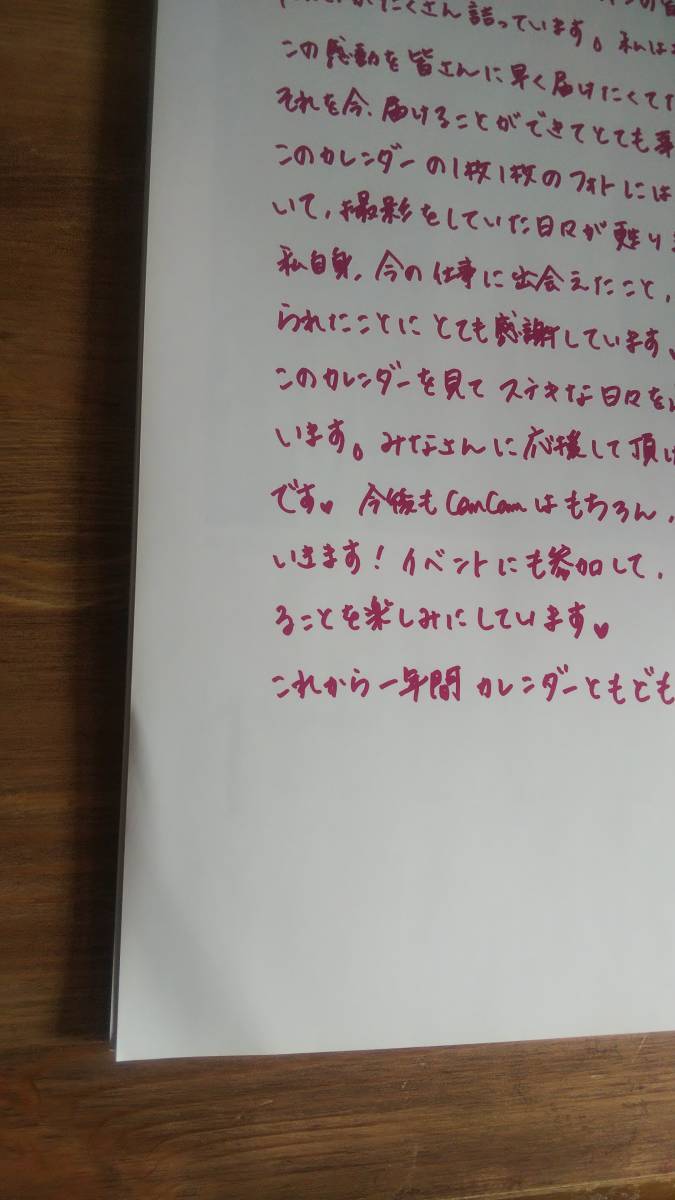 たくさん詰っています。私は
この感動を皆さんに早く届けたくて
それを今、届けることができてとても
このカレンダーの1枚1枚のフォトには
いて、撮影をしていた日々が甦り
私自身、今の仕事に出会えたこと、
られたことにとても感謝しています。
このカレンダーを見てステキな日々を
います。みなさんに応援して頂
です♥ 今後もCanCamはもちろん、
いきます!イベントにも参加して、
ることを楽しみにしています♥
これから一年間カレンダーともども